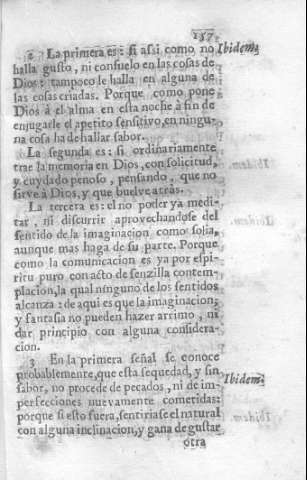 157
2 La primera es: si assi como no Ibidem.
halla gusto, ni consuelo en las cosas de
Dios: tampoco le halla en alguna de
las cosas criadas. Porque como pone
Dios à el alma en esta noche à fin de
enjugarle el apetito sensitivo, en ningu-
na cosa ha de hallar sabor.
La segunda es: si ordinariamente
trae la memoria en Dios, con solicitud,
y cuydado penoso, pensando, que no
sirve à Dios, y que buelve atràs.
La tercera es: el no poder ya medi-
tar, ni discurrir aprovechandose del
sentido de la imaginacion como solia,
aunque mas haga de su parte. Porque
como la comunicacion es ya por espi-
ritu puro con acto de senzilla contem-
placion, la qual ninguno de los sentidos
alcanza: de aqui es que la imaginacion,
y fantasia no pueden hazer arrimo, ni
dar principio con alguna considera-
cion.
3 En la primera señal se conoce
probablemente, que esta sequedad, y sin Ibidem.
sabor, no procede de pecados, ni de im-
perfecciones nuevamente cometidas:
porque si esto fuera, sentiriase el natural
con alguna inclinacion, y gana de gustar
otra